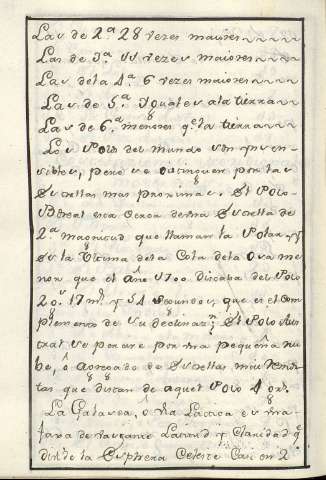 Las de 2.ª 28 vezes maiores
Las de 3.ª 11 vezes maiores
Las de la 4.ª 6 vezes maiores
Las de 5.ª Yguales a la tierra
Las de 6.ª menores q.e la tierra
Los Polos del mundo son ynven-
sibles, pero se conocen por las
Estrellas mas proximas. El Polo
Boreal esta cerca de vna Estrella de
2.ª magnitud que llaman la Polar, y
es la Vltima dela Cola dela Osa me
nor que el año 1700 distaba del Polo
2 0.s 17 m.s y 54 segundos, que es el Com
plemento de su declinaz.n El Polo Aus
tral se parece por vna pequeña nu
be, ô agregado de Estrellas mui
tas que distan de aquel Polo 4
La Galaxea, ô via Lactea es vna
faxa de bastante Latitud y Claridad q.e
divide la Esphera Celeste Casi en 2